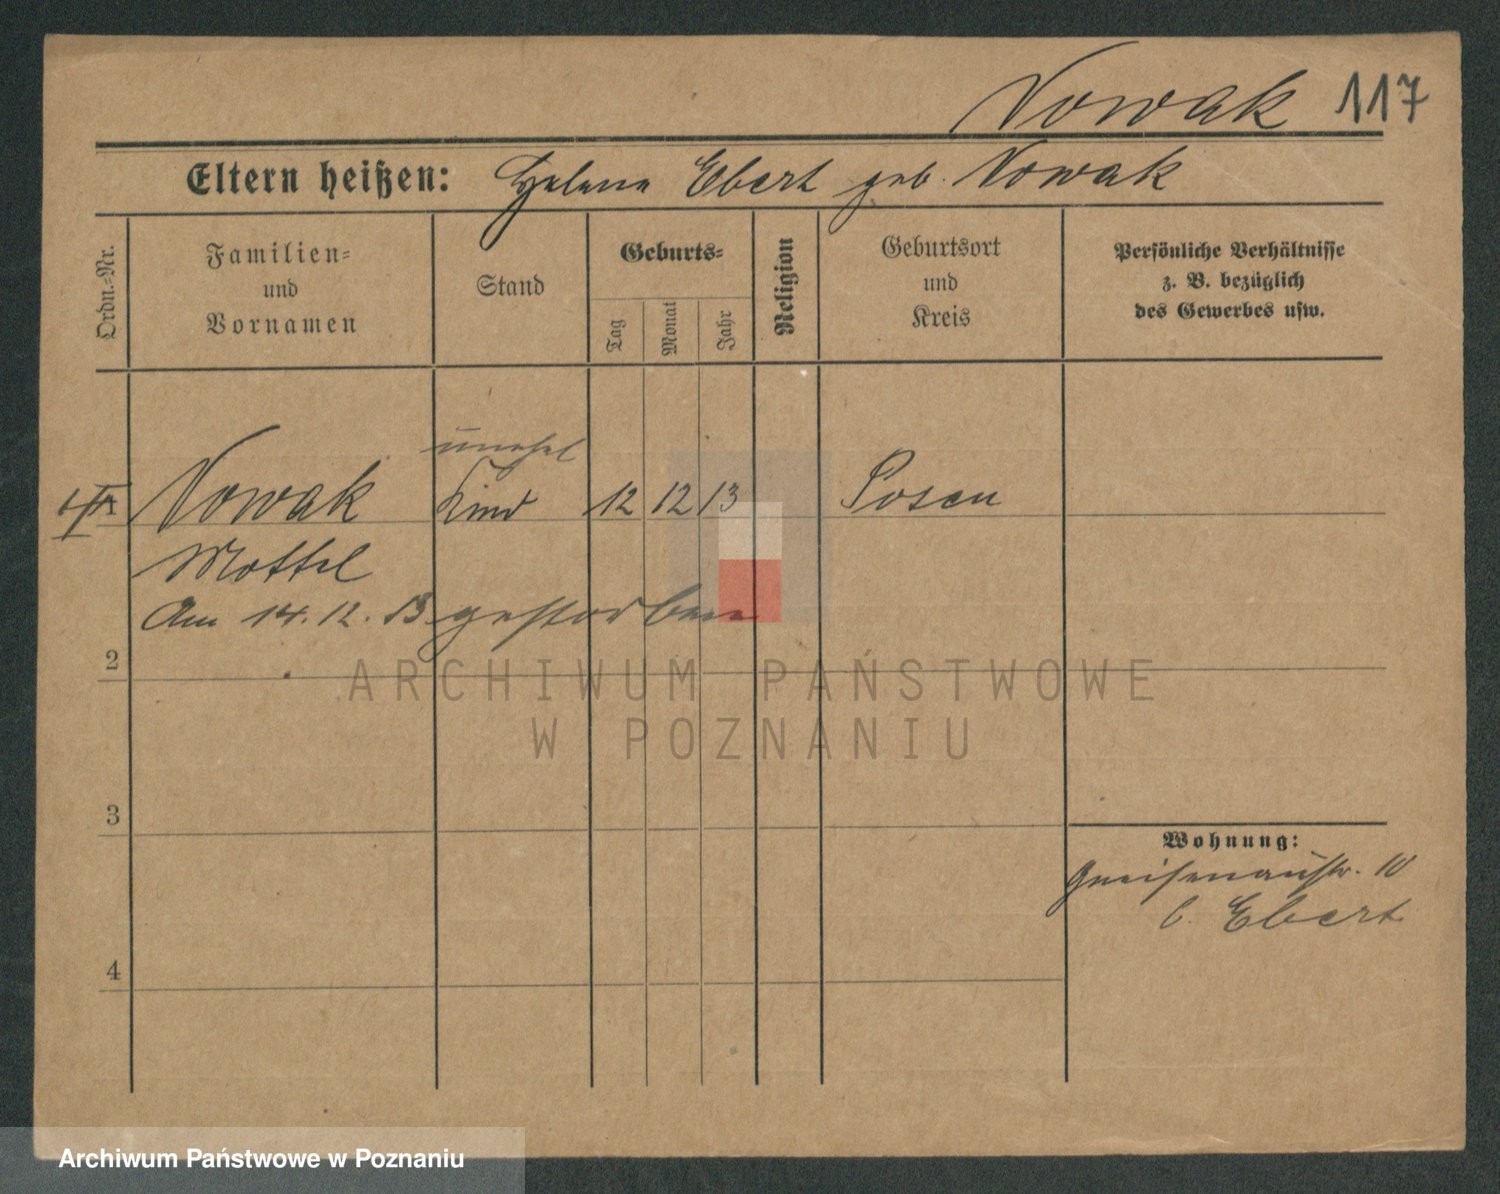 Nowak 117
Eltern heißen: Helene Ebert geb. Nowak
Ordn.-Nr.
Familien-
und
Vornamen
Stand
Geburts-
Tag
Monat
Jahr
Religion
Geburtsort
und
Kreis
Persönliche Verhältnisse
z. B. bezüglich
des Gewerbes usw.
unehel
Nowak Kind 12 12 13 Posen
Am 14.12.13 gestorben
2
ARCHIWUM PAŃSTWOWE
W POZNANIU
3
Wohnung:
Gneisenaustr. 10
b. Ebert
4
Archiwum Państwowe w Poznaniu